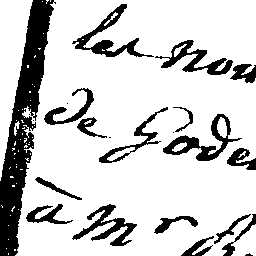 les nou
de Gode
à Mr